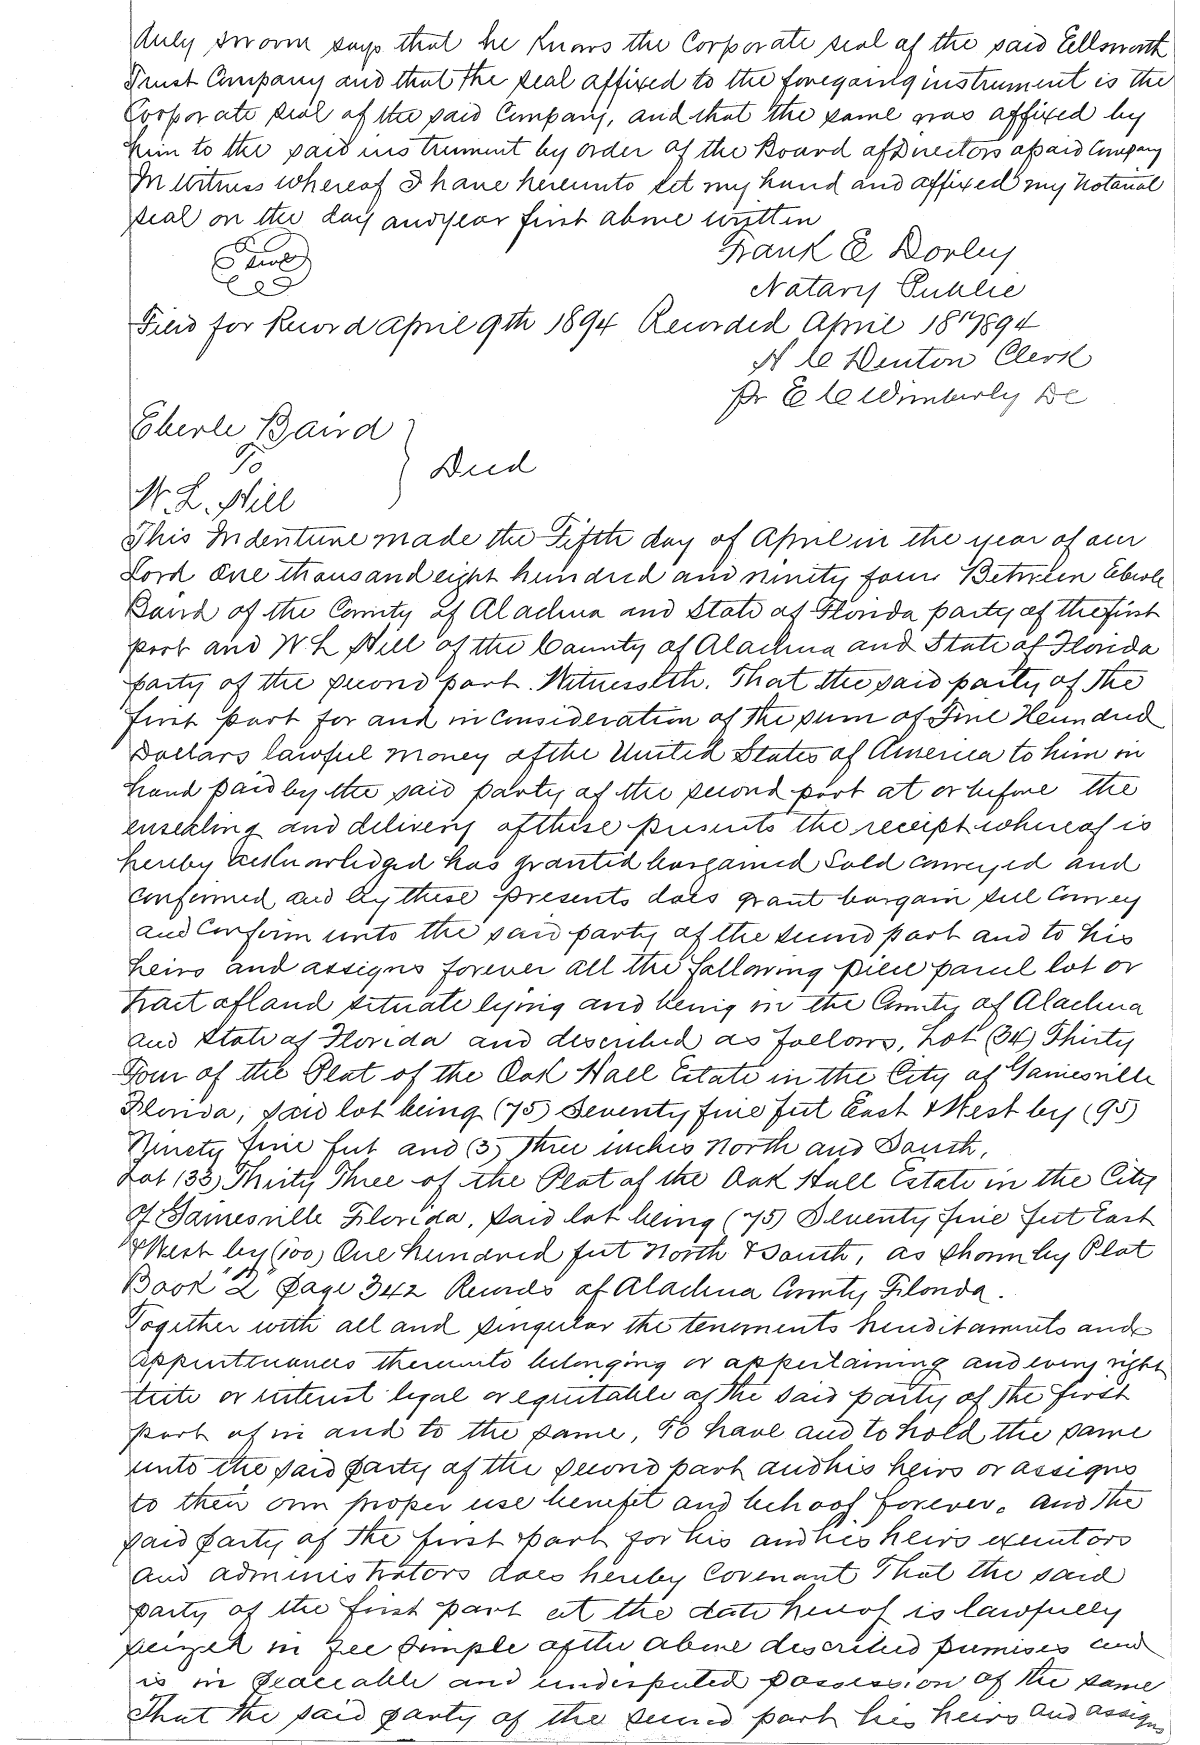 duly sworn says that he knows the Corporate seal of the said Ellsworth
Trust Company and that the seal affixed to the foregoing instrument is the
Corporate seal of the said Company, and that the same was affixed by
him to the said instrument by order of the Board of Directors of said Company
In Witness whereof I have hereunto set my hand and affixed my Notarial
seal on the day and year first above written
Frank E Dorley
Seal
Notary Public
Filed for Record April 9th 1894 Recorded April 18" 1894
H C Denton Clerk
Pr E C Wimberly DC
Eberle Baird
To
Deed
W. L. Hill
This Indenture made the Fifth day of April in the year of our
Lord One thousand eight hundred and ninety four Between Eberle
Baird of the County of Alachua and State of Florida party of the first
part and W. L Hill of the County of Alachua and State of Florida
party of the second part. Witnesseth. That the said party of the
first part for and in consideration of the sum of Five Hundred
Dollars lawful money of the United States of America to him in
hand paid by the said party of the second part at or before the
ensealing and delivery of these presents the receipt whereof is
hereby acknowledged has granted bargained Sold conveyed and
confirmed and by these presents does grant bargain sell Convey
and Confirm unto the said party of the second part and to his
heirs and assigns forever all the following piece parcel lot or
tract of land situate lying and being in the County of Alachua
and State of Florida and described as follows, Lot (34) Thirty
Four of the Plat of the Oak Hall Estate in the City of Gainesville
Florida, said lot being (75) Seventy five feet East & West by (95)
Ninety five feet and (3) Three inches North and South,
Lot (33) Thirty Three of the Plat of the Oak Hall Estate in the City
of Gainesville Florida, said lot being (75) Seventy five feet East
& West by (100) One hundred feet North & South, as shown by Plat
Book "2" Page 342 Records of Alachua County Florida.
Together with all and singular the tenements hereditaments and
appurtenances thereunto belonging or appertaining and every right
title or interest legal or equitable of the said party of the first
part of in and to the same, To have and to hold the same
unto the said party of the second part and his heirs or assigns
to their own proper use benefit and behoof forever. And the
said party of the first part for his and his heirs executors
and administrators does hereby Covenant That the said
party of the first part at the date hereof is lawfully
seized in fee simple of the above described premises and
is in peaceable and undisputed possession of the same
That the said party of the second part his heirs and assigns